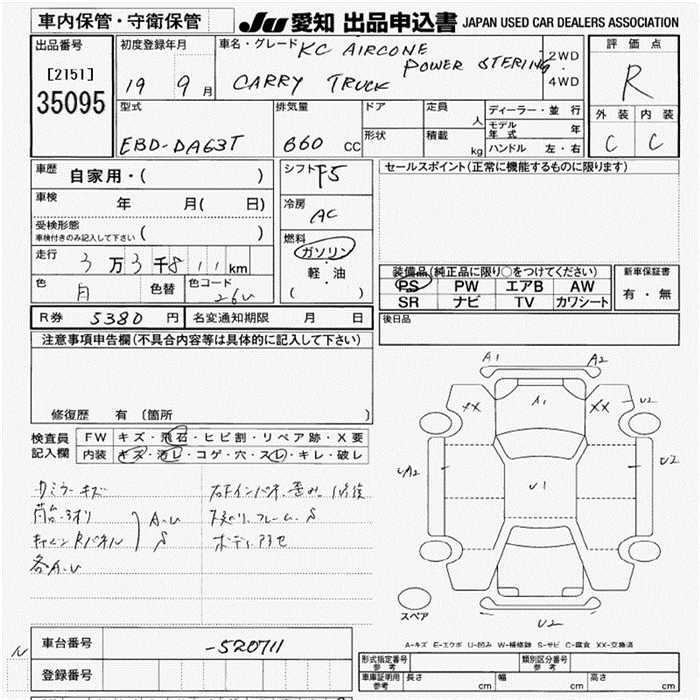 車内保管・守衛保管
JU 愛知 出品申込書 JAPAN USED CAR DEALERS ASSOCIATION
出品番号
[2151]
35095
初度登録年月
19 9 月
車名・グレード KC AIRCONE
POWER STERING
CARRY TRUCK
2WD
・
4WD
評価点
R
外装 内装
C C
型式
EBD-DA63T
排気量
660 CC
ドア
形状
定員
人
積載
kg
ディーラー・並行
モデル年式 年
ハンドル 左・右
車歴
自家用・( )
車検
年 月( 日)
受検形態
車検付きのみ記入して下さい ( )
走行
3万3千811km
色
色替
色コード
26U
シフト
F5
冷房
AC
燃料
ガソリン
・
軽・油
( )
セールスポイント(正常に機能するものに限ります)
装備品(純正品に限り○をつけてください)
PS PW エアB AW
SR ナビ TV カワシート
新車保証書
有・無
R券 5380 円
名変通知期限 月 日
後日品
注意事項申告欄(不具合内容等は具体的に記入して下さい)
修復歴 有 〔箇所 〕
検査員
記入欄
FW キズ・飛石・ヒビ割・リペア跡・X要
内装 キズ・汚レ・コゲ・穴・スレ・キレ・破レ
ミラーキズ
A.U
S
各A.U
S
A1 A2
XX A1 XX U2
UA2 U1 U2
U2
スペア
A-キズ E-エクボ U-凹み W-補修跡 S-サビ C-腐食 XX-交換済
車台番号
-520711
登録番号
形式指定番号
参考
類別区分番号
参考
車庫証明用
参考
長さ cm 幅 cm 高さ cm